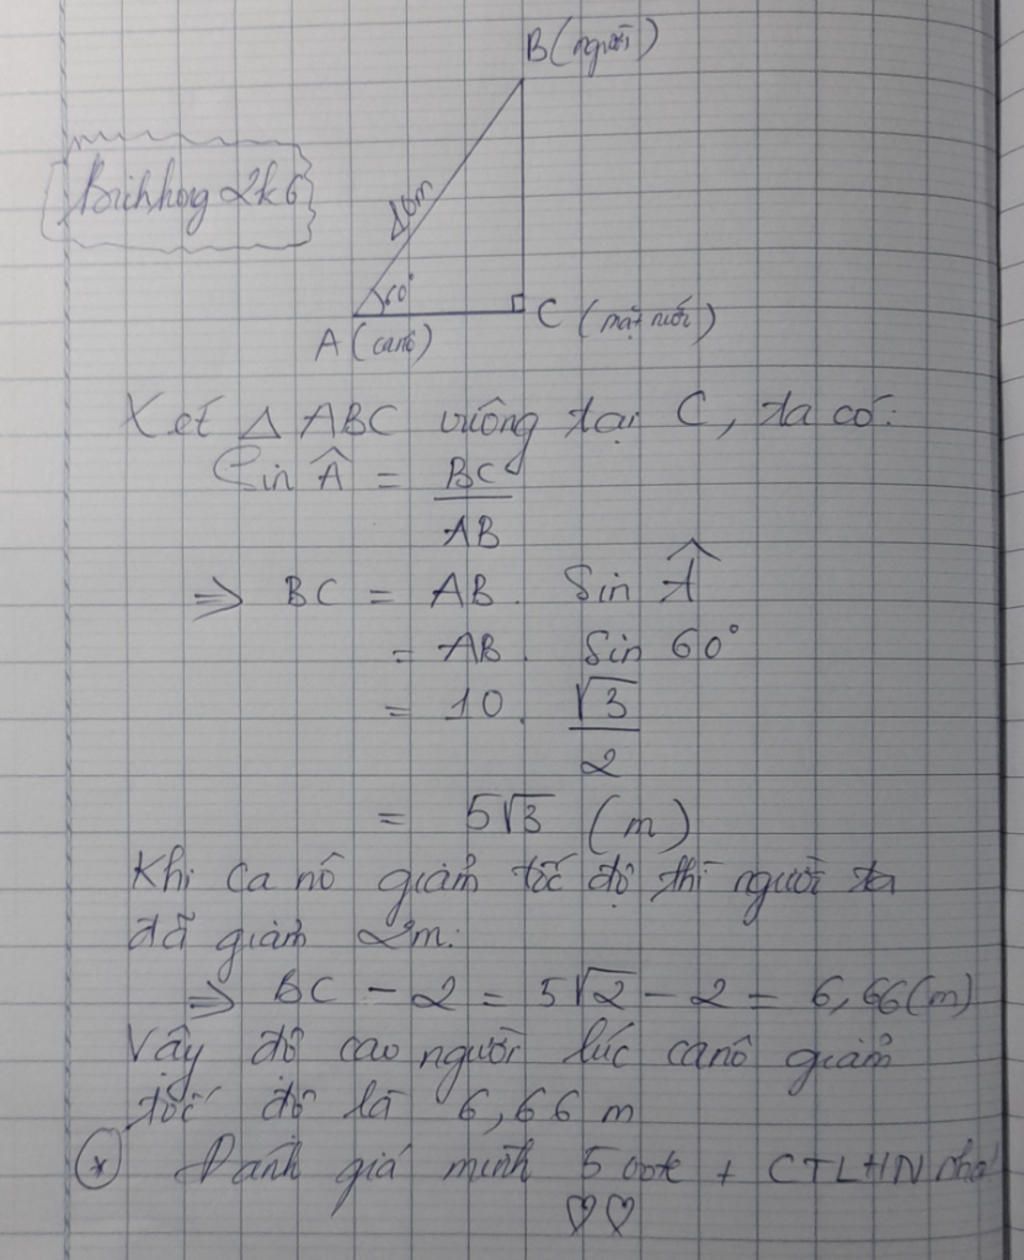 B (người)
Bichhong 2k6
10m
60°
C (mặt nước)
A (canô)
Xét △ ABC vuông tại C, ta có:
Sin Â = BC
AB
=> BC = AB . Sin Â
= AB . Sin 60°
= 10 . √3
2
= 5√3 (m)
Khi ca nô giảm tốc độ thì người ta
đã giảm 2m.
=> BC - 2 = 5√2 - 2 = 6,66 (m)
Vậy độ cao người lúc canô giảm
tốc độ là 6,66 m
* Đánh giá mình 5 + CTLHN nha
♡♡